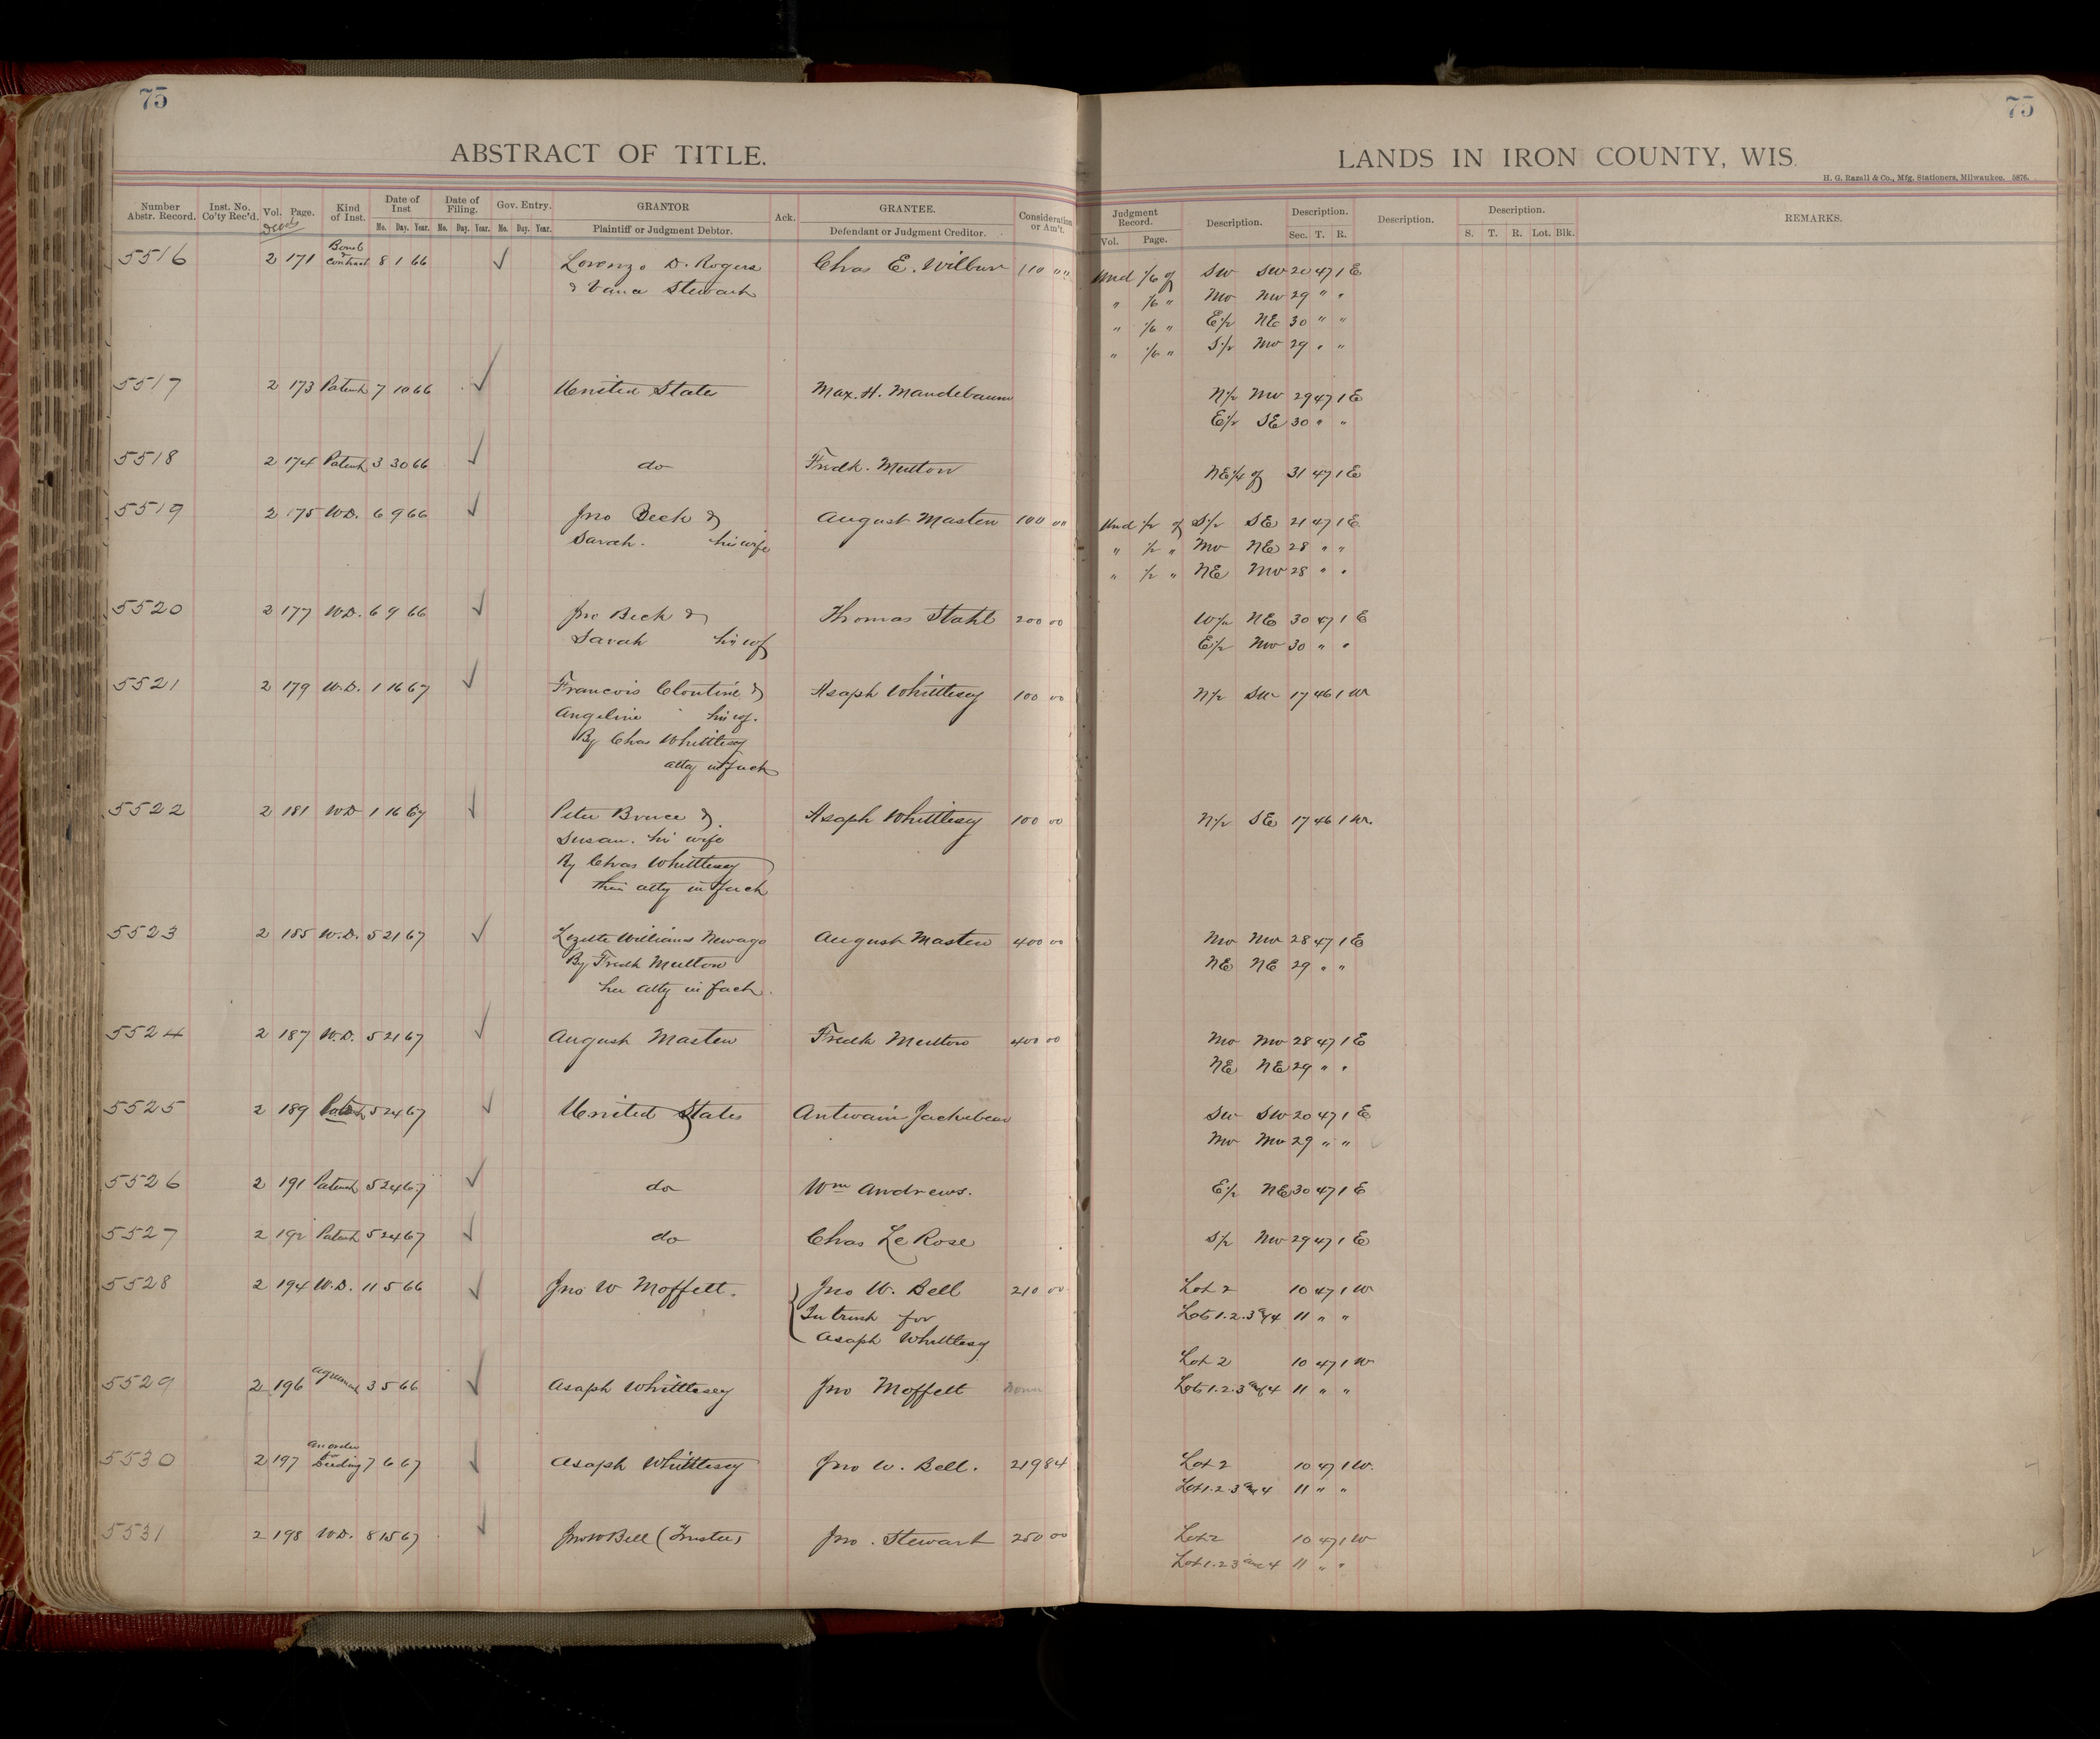 75
75
ABSTRACT OF TITLE.
LANDS IN IRON COUNTY, WIS.
H. G. Razall & Co., Mfg. Stationers, Milwaukee. 5876.
Number Abstr. Record. Inst. No. Co'ty Rec'd. Vol. Page. Kind of Inst. Date of Inst Date of Filing. Gov. Entry. GRANTOR Ack. GRANTEE. Consideration or Am't. Judgment Record. Description. Description. Description. Description. REMARKS.
Deeds Mo. Day. Year. Mo. Day. Year. Mo. Day. Year. Plaintiff or Judgment Debtor. Defendant or Judgment Creditor. Vol. Page. Sec. T. R. S. T. R. Lot. Blk.
5516 2 171 Bond & Contract 8 1 66 ✓ Lorenzo D. Rogers Chas E. Wilbur 110 " Und 1/6 of SW SW 20 47 1 E
& Vance Stewart " 1/6 " NW NW 29 " "
" 1/6 " E 1/2 NE 30 " "
" 1/6 " S 1/2 NW 29 " "
5517 2 173 Patent 7 10 66 ✓ United State Max. H. Mandebaum N 1/2 NW 29 47 1 E
E 1/2 SE 30 " "
5518 2 174 Patent 3 30 66 ✓ do Fredk. Mutton NE 1/4 of 31 47 1 E
5519 2 175 W.D. 6 9 66 ✓ Jno Beck & August Masten 100 00 Und 1/2 of S 1/2 SE 21 47 1 E
Sarah. his wife " 1/2 " NW NE 28 " "
" 1/2 " NE NW 28 " "
5520 2 177 W.D. 6 9 66 ✓ Jno Beck & Thomas Stahl 200 00 W 1/2 NE 30 47 1 E
Sarah his wf E 1/2 NW 30 " "
5521 2 179 W.D. 1 16 67 ✓ Francois Cloutine & Asaph Whittlesey 100 00 N 1/2 SW 17 46 1 W
Angeline his wf.
By Chas Whittlesey
atty in fact
5522 2 181 W.D 1 16 67 ✓ Peter Bruce & Asaph Whittlesey 100 00 N 1/2 SE 17 46 1 W.
Susan. his wife
By Chas Whittlesey
their atty in fact
5523 2 185 W.D. 5 21 67 ✓ Lizette Williams Newago August Masten 400 00 NW NW 28 47 1 E
By Fredk Mutton NE NE 29 " "
her atty in fact.
5524 2 187 W.D. 5 21 67 ✓ August Masten Fredk Mutton 400 00 NW NW 28 47 1 E
NE NE 29 " "
5525 2 189 Patent 5 24 67 ✓ United States Antwain Jackebeau SW SW 20 47 1 E
NW NW 29 " "
5526 2 191 Patent 5 24 67 ✓ do Wm Andrews. E 1/2 NE 30 47 1 E
5527 2 192 Patent 5 24 67 ✓ do Chas Le Rose S 1/2 NW 29 47 1 E
5528 2 194 W.D. 11 5 66 ✓ Jno W Moffett. Jno W. Bell 210 00 Lot 2 10 47 1 W
In trust for Lots 1.2.3 & 4 11 " "
Asaph Whittlesey
Lot 2 10 47 1 W
5529 2 196 Agreement 3 5 66 ✓ Asaph Whittlesey Jno Moffett None Lots 1.2.3 and 4 11 " "
5530 2 197 An order for Deeding 7 6 67 ✓ Asaph Whittlesey Jno W. Bell. 219 84 Lot 2 10 47 1 W.
Lot 1.2.3 and 4 11 " "
5531 2 198 W.D. 8 15 67 ✓ Jno W Bell (Trustee) Jno. Stewart 250 00 Lot 2 10 47 1 W
Lot 1.2 3 and 4 11 " "